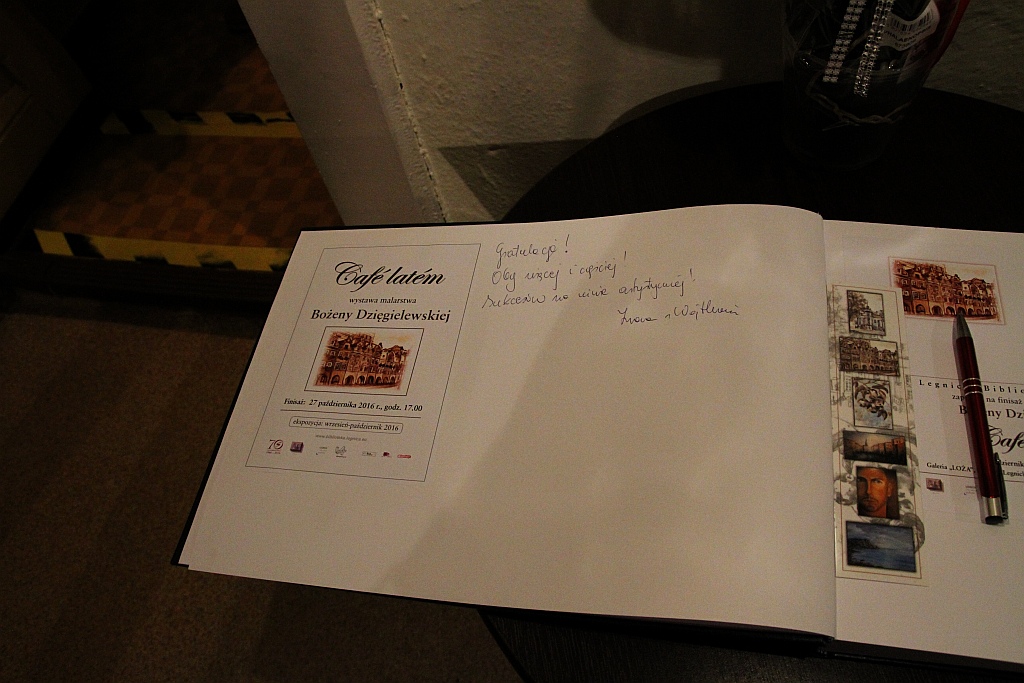 Café latém
wystawa malarstwa
Bożeny Dzięgielewskiej
Finisaż: 27 października 2016 r., godz. 17.00
ekspozycja: wrzesień-październik 2016
www.biblioteka.legnica.eu
70
Gratulacje!
Oby więcej i częściej!
Sukcesów na niwie artystycznej!
Legnic Bibli
na finisaż
B ny Dzię
Café
Galeria „LOŻA”